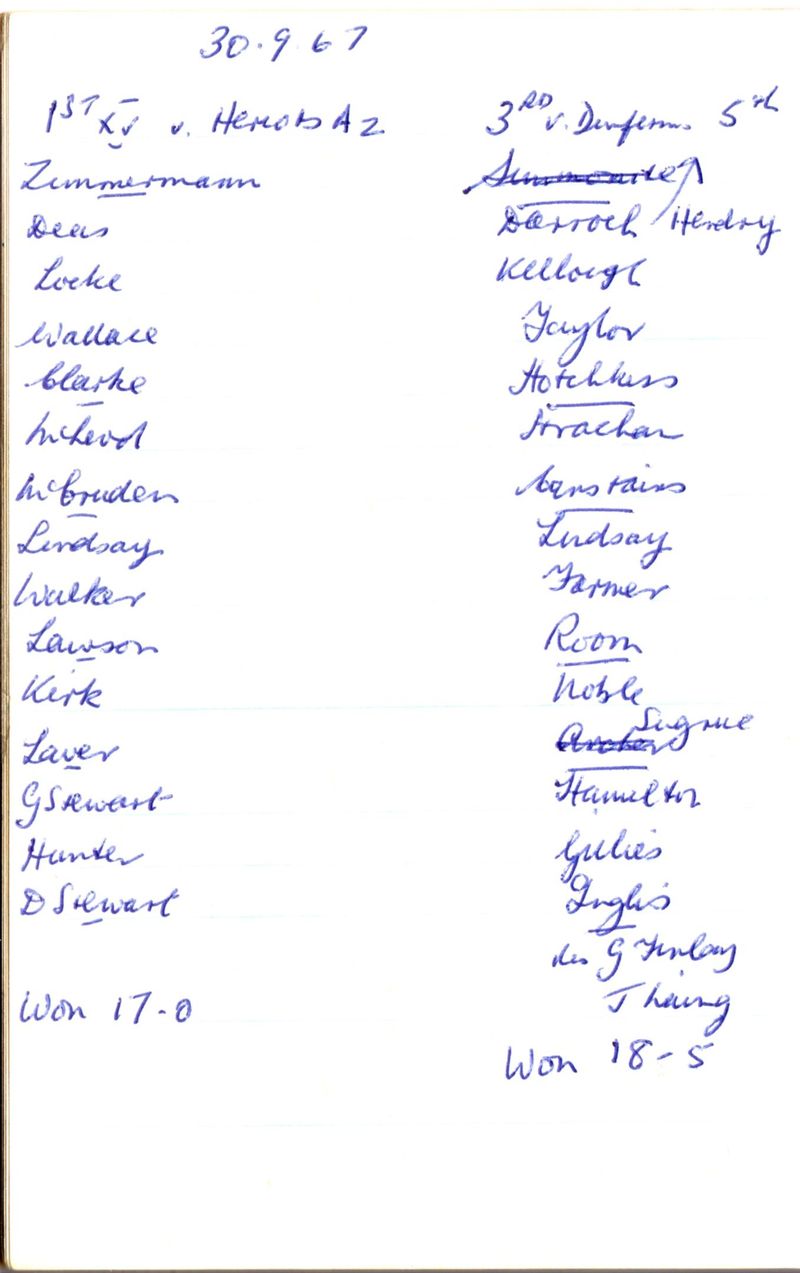 30.9.67
1ST XV v. Heriots A2
Zimmermann
Deas
Locke
Wallace
Clarke
McLeod
McCrudden
Lindsay
Walker
Lawson
Kirk
Laver
G Stewart
Hunter
D Stewart
Won 17-0
3RD v. Dunferm. 5th
Hendry
Darroch
Kellough
Taylor
Hotchkiss
Strachan
Carstairs
Lindsay
Farmer
Room
Noble
Sugrue
Hamilton
Gillies
Inglis
G Finlay
J Laing
Won 18-5